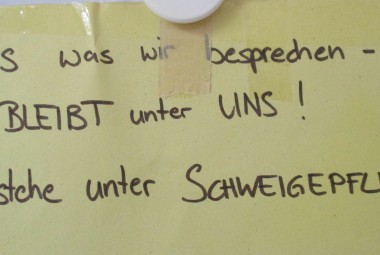 s was wir besprechen -
BLEIBT unter UNS !
stehe unter SCHWEIGEPFL